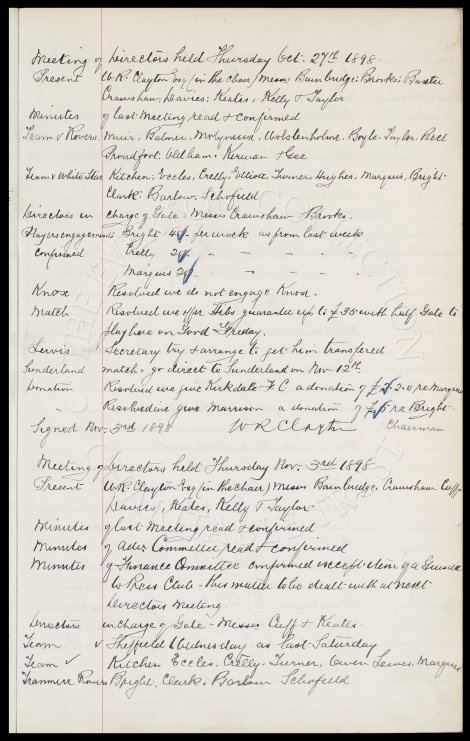 Meeting of Directors held Thursday Oct. 27th 1898.
Present W.R. Clayton Esq (in the chair) Messrs Bainbridge; Brooks; Baxter
Crawshaw, Davies; Keates, Kelly & Taylor
Minutes of last Meeting read & confirmed
Team v Rovers. Muir, Balmer, Molyneux, Wolstenholme, Boyle, Taylor, Bell
Proudfoot, Oldham, Kirwan & Gee
Team v White Star Kitchen; Eccles, Crelly, Elliott, Turner, Hughes, Marquis, Bright
Clark. Barlow, Schofield
Directors in charge of Gate: Messrs Crawshaw & Brooks.
Players engagements Bright 40/- per week as from last week
confirmed Crelly 20/- " " " " "
Marquis 20/- " " " " "
Knox Resolved we do not engage Knox.
Match Resolved we offer Hibs guarantee up to £35 with half Gate to
play here on Good Friday.
Lewis Secretary try & arrange to get him transferred
Sunderland match - go direct to Sunderland on Nov 12th.
Donation Resolved we give Kirkdale F.C a donation of £2.2.0 re Marquis
" Resolved we give Marrison a donation of £5 re Bright
Signed Nov. 3rd 1898 W R Clayton Chairman
Meeting of Directors held Thursday Nov. 3rd 1898
Present W.R. Clayton Esq (in the chair) Messrs Bainbridge, Crawshaw Cuff
Davies, Keates, Kelly & Taylor.
Minutes of last Meeting read & confirmed
Minutes of adv. Committee read & confirmed
Minutes of Finance Committee confirmed except item of a Guinea
to Press Club - this matter to be dealt with at next
Directors Meeting.
Directors in charge of Gate - Messrs Cuff & Keates.
Team v Sheffield Wednesday as last Saturday
Team v Kitchen Eccles, Crelly, Turner, Owen Lewis, Marquis
Tranmere Rovers Bright, Clark. Barlow Schofield